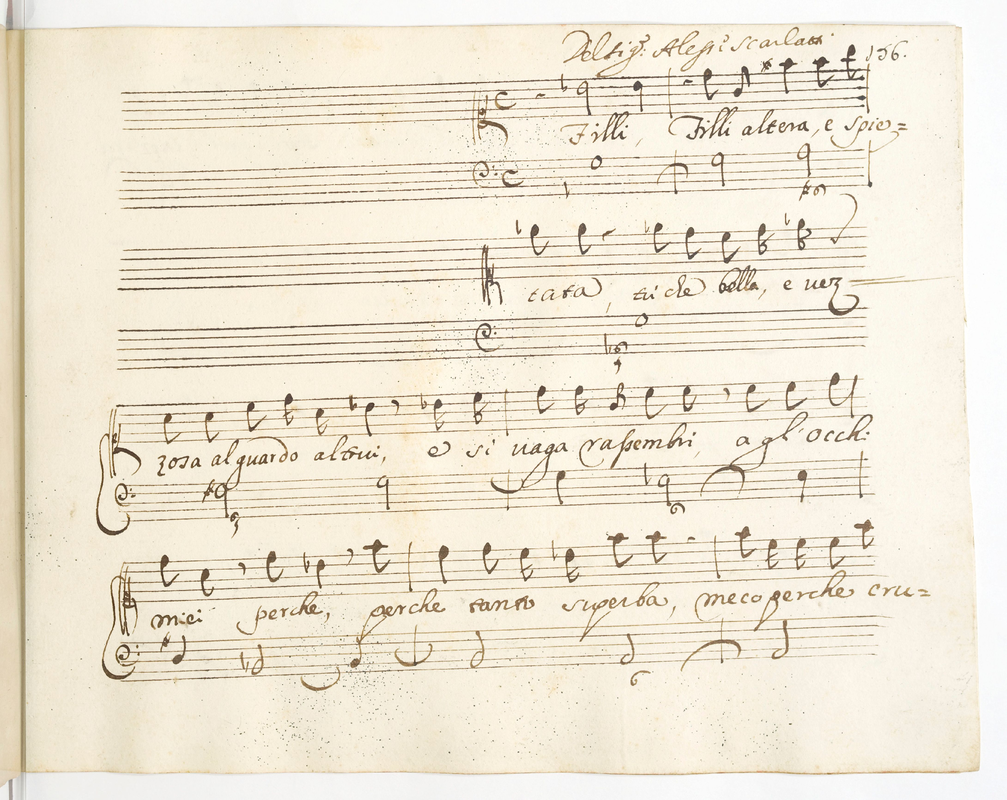 Del Sig.r Aless.o Scarlatti 136.
Filli, Filli altera, e spie=
tata, tu che bella, e vez=
zosa al guardo altrui, e si vaga rassembri a gl'occhi
miei perche, perche tanto superba, meco perche cru=